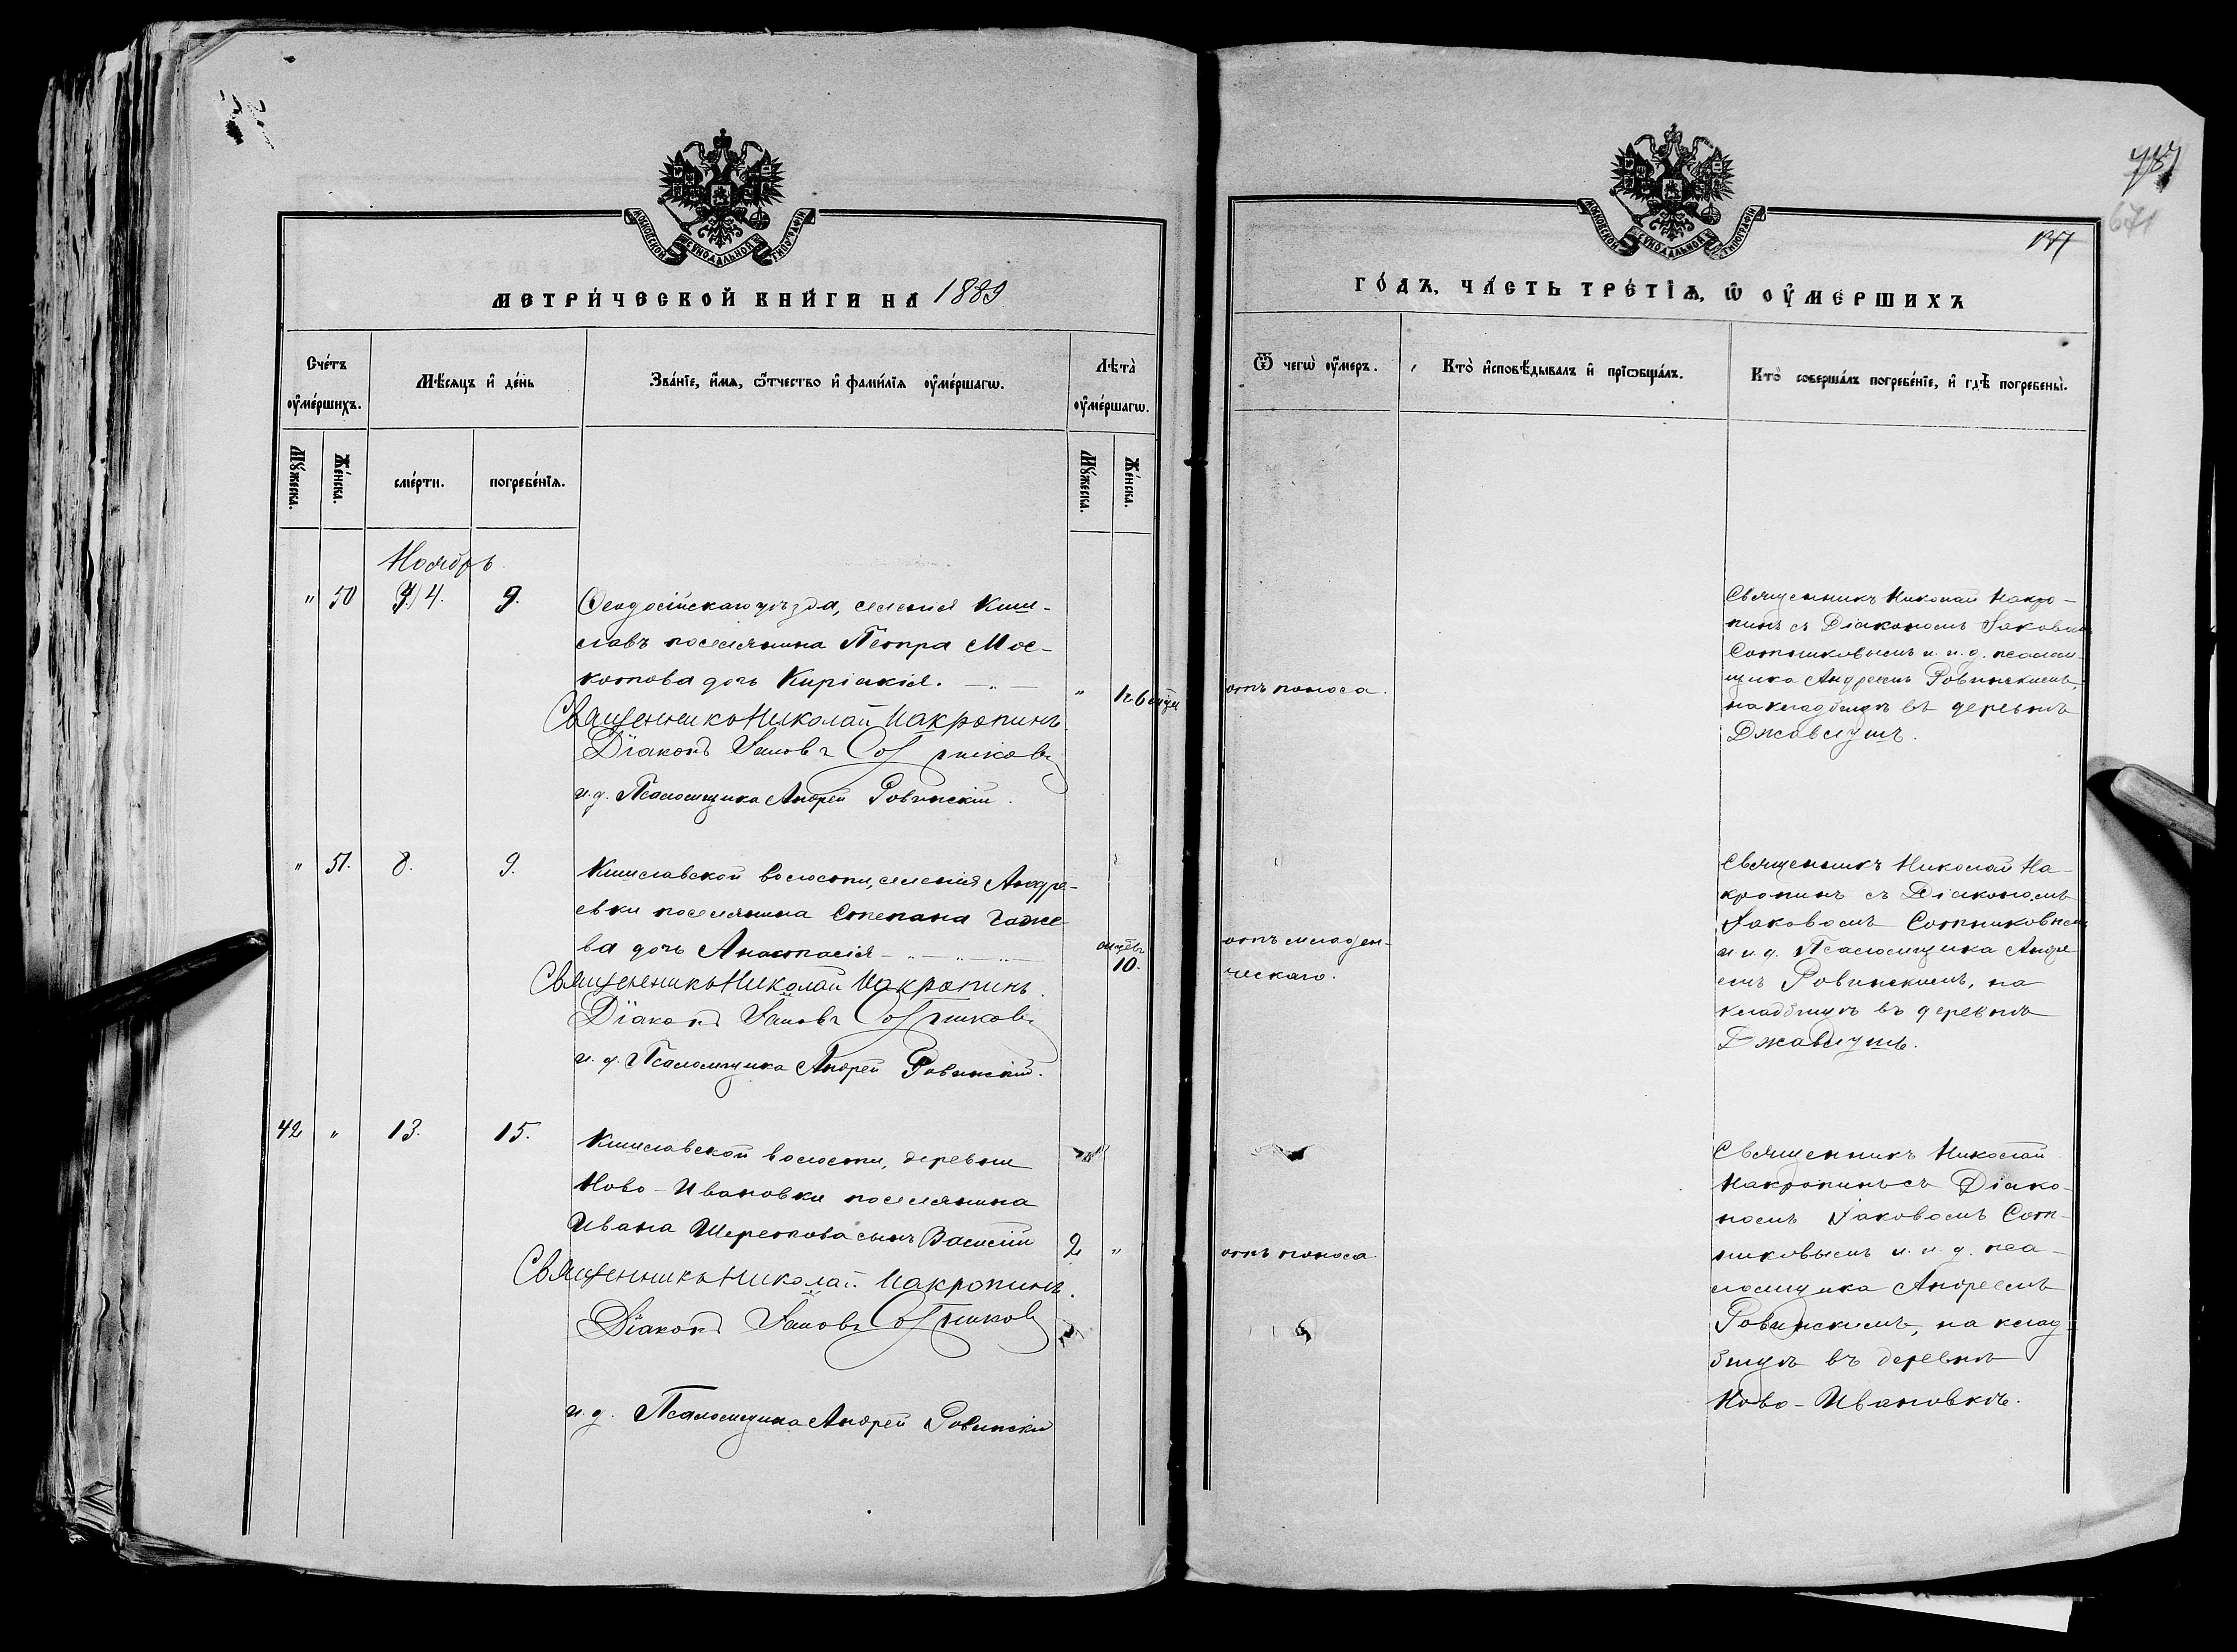 МОСКОВСКОЙ СѴНОДАЛЬНОЙ ТИПОГРАФІИ
МЕТРИ́ЧЕСКОЙ КНИ́ГИ НА 1889
Сче́тъ ᲂу҆ме́ршихъ.
Мѣ́сяцъ и҆ де́нь
Зва́нїе, и҆́мѧ, ѻ҆́тчество и҆ фами́лїѧ ᲂу҆ме́ршагѡ.
Лѣ́та ᲂу҆ме́ршагѡ.
Мꙋ́жеска.
Же́нска.
сме́рти.
погребе́нїѧ.
Мꙋ́жеска.
Же́нска.
Ноябрь
" 50 4. 9. Ѳеодосійскаго уѣзда, селенія Киш-
лавъ поселянина Петра Мос-
котова дочь Киріакія. " 1 г. 6 мѣц
Священникъ Николай Макропинъ.
Діаконъ Іаковъ Сотниковъ
и. д. Псаломщика Андрей Ровинскій.
" 51. 8. 9. Кишлавской волости, селенія Андре-
евки поселянина Степана Гаже-
ва дочь Анастасія
мцевъ 10.
Священникъ Николай Макропинъ.
Діаконъ Іаковъ Сотниковъ
и. д. Псаломщика Андрей Ровинскій.
42 " 13. 15. Кишлавской волости, деревни
Ново-Ивановки поселянина
Ивана Шереткова сынъ Василій 2 "
Священникъ Николай Макропинъ.
Діаконъ Іаковъ Сотниковъ
и. д. Псаломщика Андрей Ровинскій
МОСКОВСКОЙ СѴНОДАЛЬНОЙ ТИПОГРАФІИ
671
ГО́ДЪ, ЧА́СТЬ ТРЕ́ТЇѦ, Ѡ҆ ОУ҆МЕ́РШИХЪ
Ѿ чегѡ̀ ᲂу҆́меръ.
Кто̀ и҆сповѣ́дывалъ и҆ прїѡбща́лъ.
Кто̀ соверша́лъ погребе́нїе, и҆ гдѣ̀ погребены̀.
отъ поноса.
Священникъ Николай Макро-
пинъ съ Діакономъ Іаковомъ
Сотниковымъ и и. д. псалом-
щика Андреемъ Ровинскимъ,
на кладбищѣ въ деревнѣ
Джавлушъ.
отъ младен-
ческаго.
Священникъ Николай Ма-
кропинъ съ Діакономъ
Іаковомъ Сотниковымъ
и и. д. Псаломщика Андре-
емъ Ровинскимъ, на
кладбищѣ въ деревнѣ
Джавлушъ.
отъ поноса.
Священникъ Николай
Макропинъ съ Діако-
номъ Іаковомъ Сот-
никовымъ и и. д. пса-
ломщика Андреемъ
Ровинскимъ, на клад-
бищѣ въ деревнѣ
Ново-Ивановкѣ.